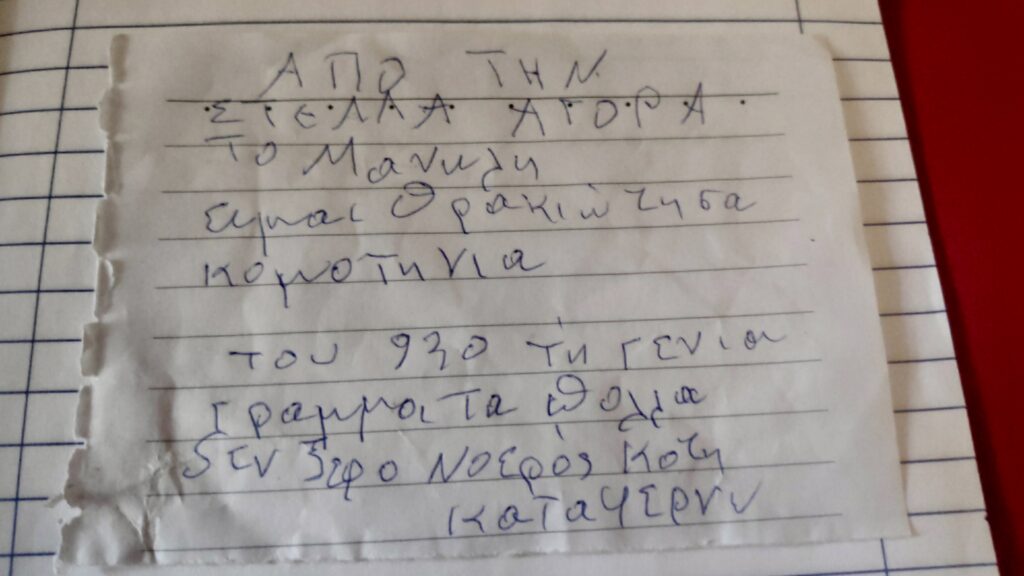 ΑΠΟ ΤΗΝ
ΣΤΕΛΛΑ ΑΓΟΡΑ
Το Μανωλη
ειμαι Θρακιώτησα
κομοτηνια
του 930 τη γενια
Γραμματα πολλα
δεν ξερο
καταφερνν